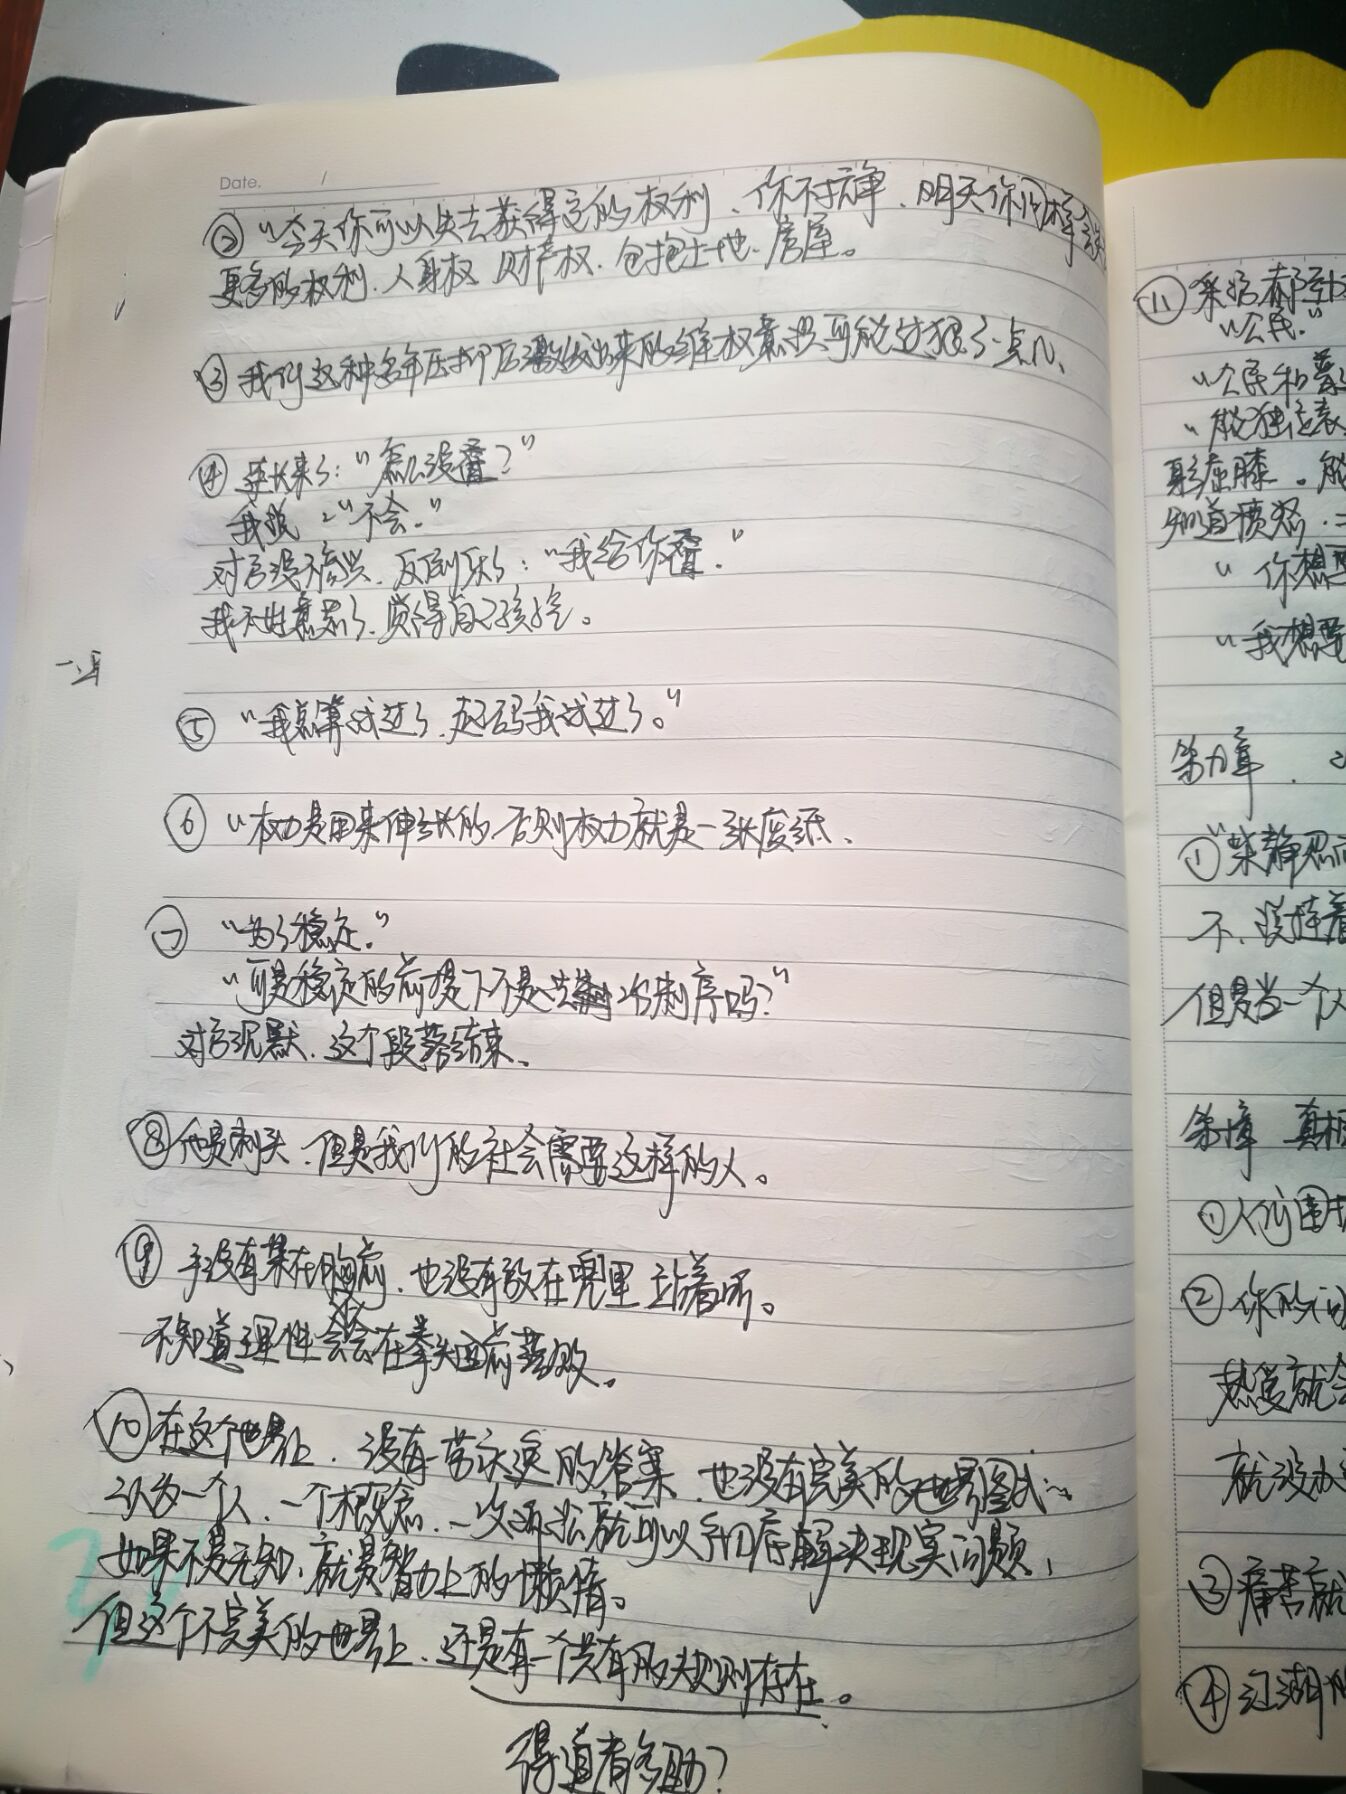 Date. /
② “今天你可以失去获得它的权利、你不抗争、明天你同样会失去
更多的权利、人身权 财产权、包括土地、房屋。
③ 我们这种多年压抑后激发出来的维权意识可能过狠了一点儿、
④ 连长来了：“怎么没叠？”
我说：“不会。”
对方没有发火、反倒乐了：“我给你叠。”
我不好意思了、觉得自己
⑤ “我总算试过了、起码我试过了。”
⑥ “权力是用来伸张的、否则权力就是一张废纸、
⑦ “为了稳定。”
“可是稳定的前提下不是
对方沉默、这个段落结束、
⑧ 他是刺头、但是我们的社会需要这样的人。
⑨ 手没有 在胸前、也没有放在兜里 站着听。
不知道理性会 会在拳头面前落败。
⑩ 在这个世界上、没有一劳永逸的答案、也没有完美的世界图式、
认为一个人、一个概念、一次 就可以彻底解决现实问题、
如果不是无知、就是智力上的懒惰。
但这个不完美的世界上、还是有一个共有的规则存在。
得道者多助？
⑪ 
“公民.”
“公民和
“能独立表
知道愤怒、
“你想要
“我想要
第九章、
① “柴静
不、没
但是当一个人
第十章 真相
① 人们围
② 你的问
热爱就会
就没办
③ 痛苦就
④ 江湖